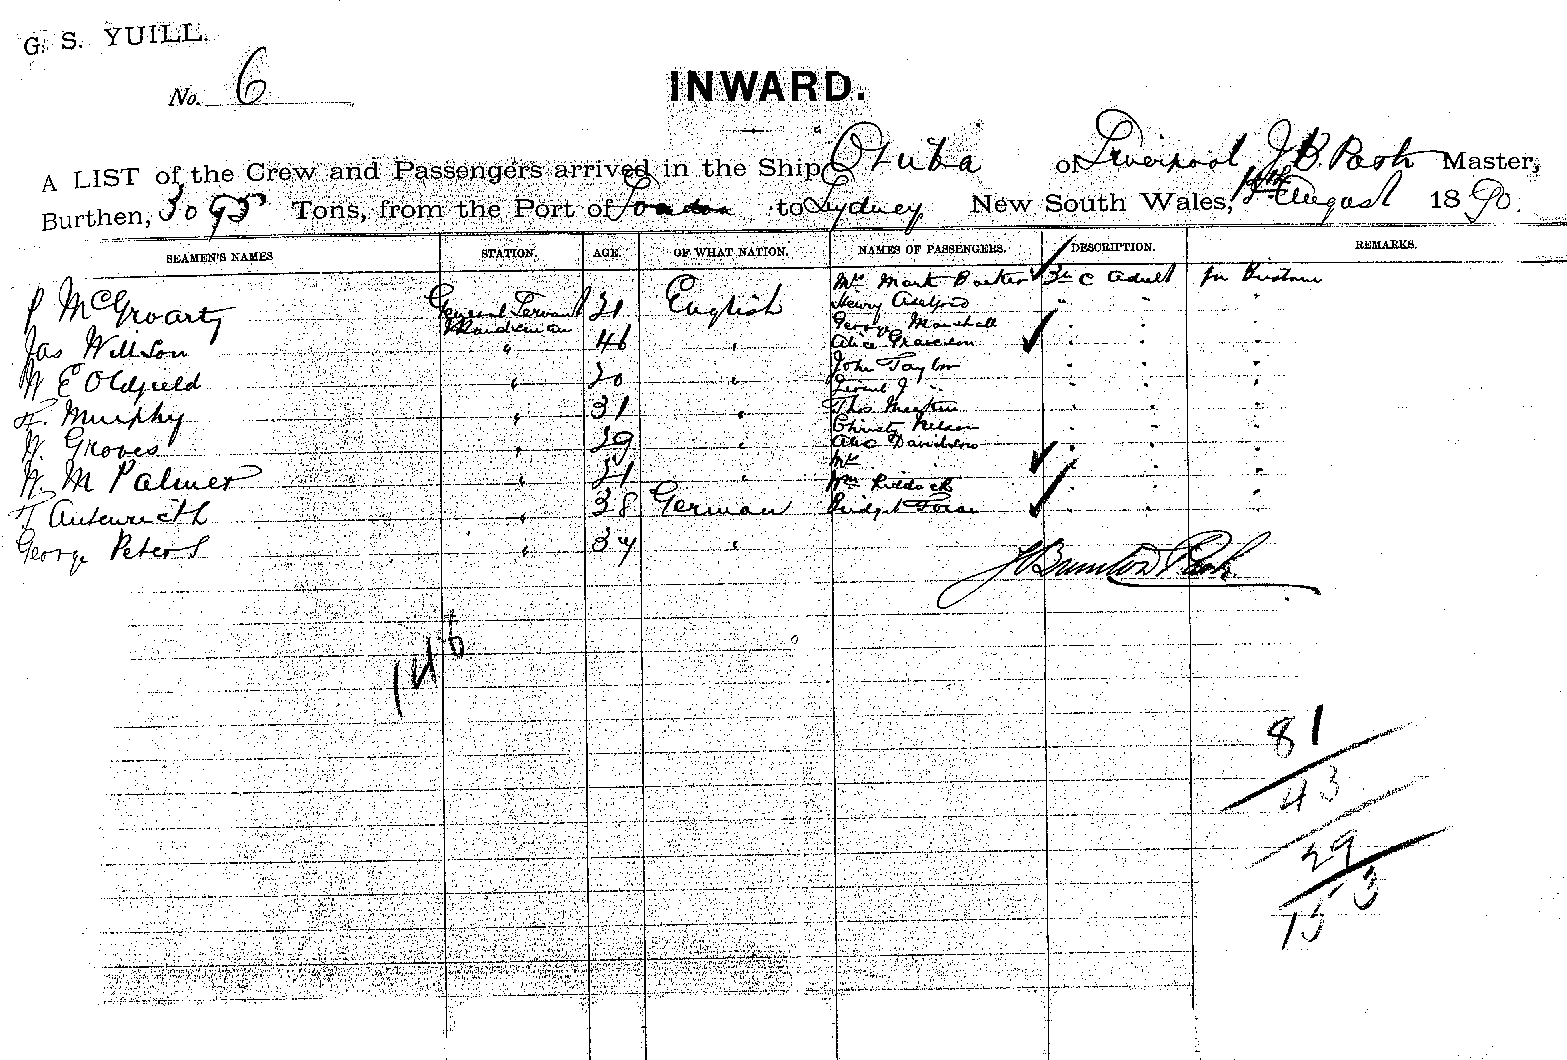 G. S. YUILL.
No. 6
INWARD.
A LIST of the Crew and Passengers arrived in the Ship Oruba of Liverpool J B Pash Master,
Burthen, 3095 Tons, from the Port of London to Sydney New South Wales, 14th August 1890.
SEAMEN'S NAMES STATION. AGE. OF WHAT NATION. NAMES OF PASSENGERS. DESCRIPTION. REMARKS.
Mr Mark Barker 3rd C Adult for Brisbane
P McGroarty General Servant 21 English Henry
George Marshall " " "
Jas Willson " 46 " Alice " " "
John Taylor " " "
W E Oldfield " 20 " " " "
F. Murphy " 31 " Thos " " "
Christy Nelson " " "
W. Groves " 29 " Alic Davidson " " "
Mrs " " " "
W M Palmer " 21 " Wm Riddock " " "
" 38 German Bridget " " "
George Peters " 34 "
J Brunton Pash
146
81
43
29
153